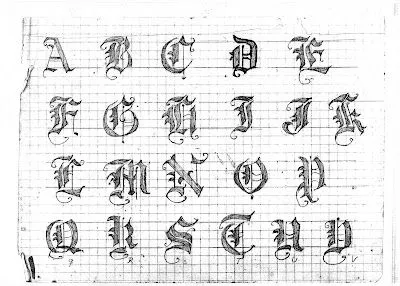 A B C D E
F G H I J K
L M N O P
Q R S T U V